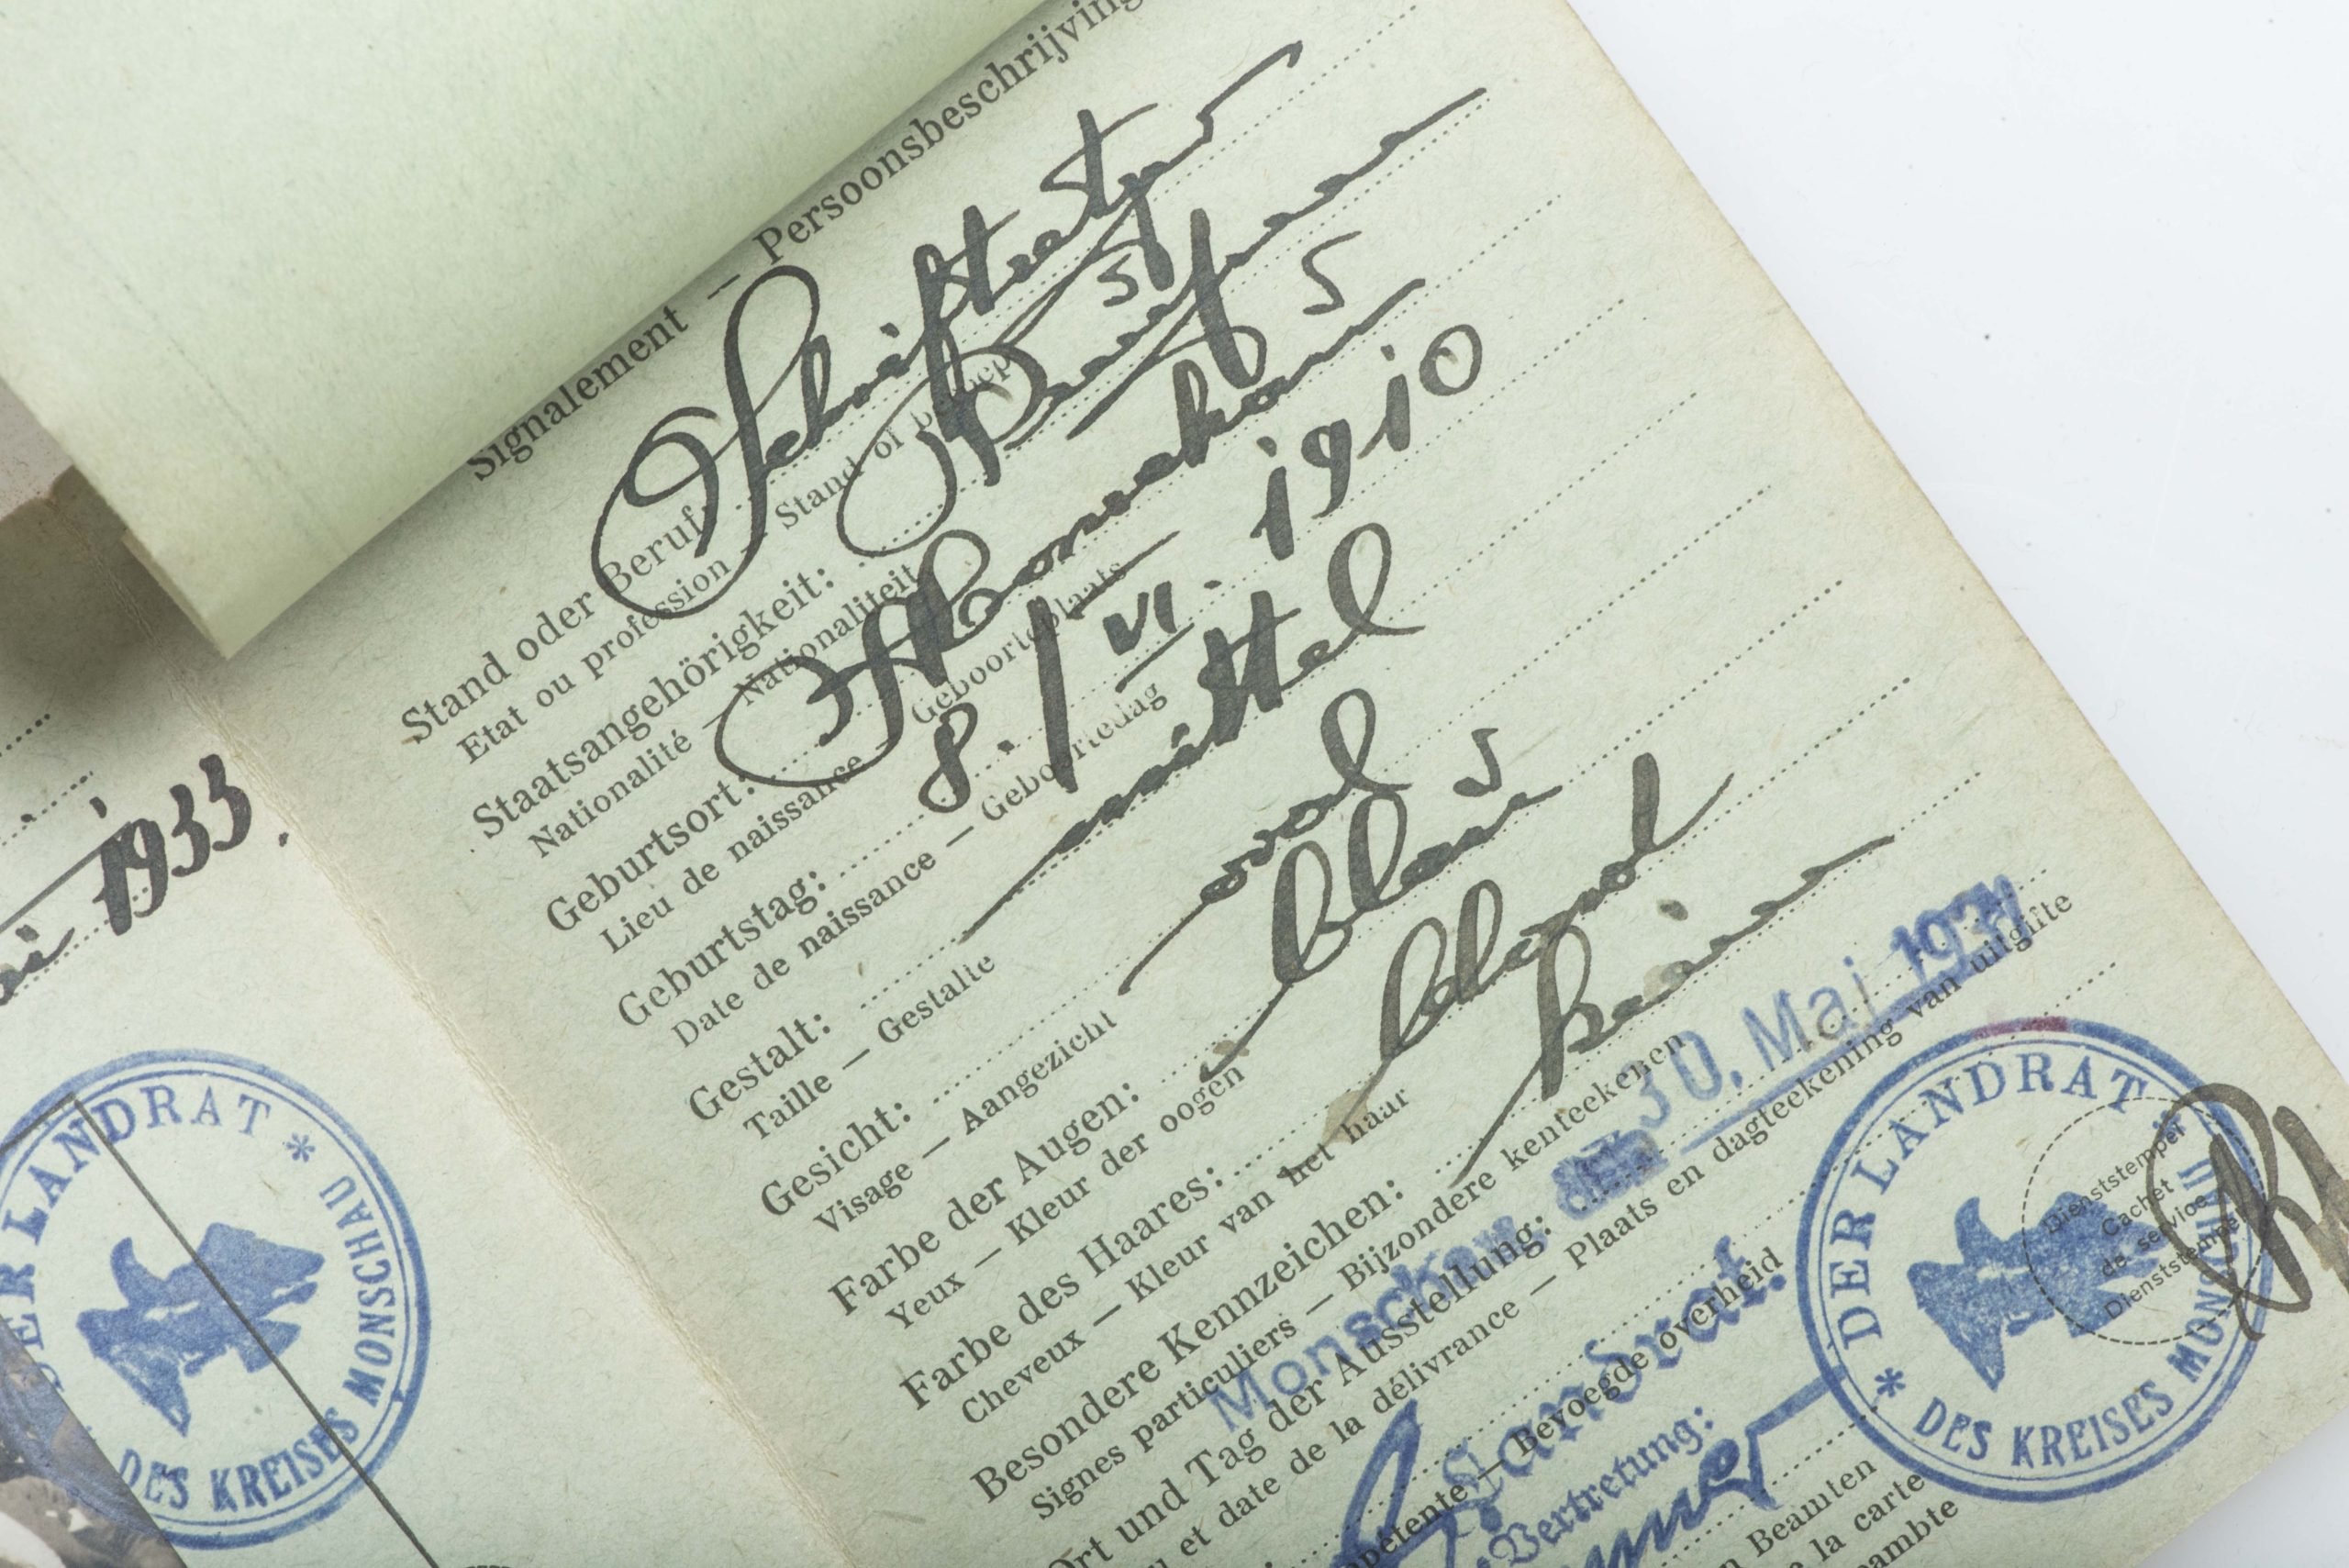 Signalement — Persoonsbeschrijving
Stand oder Beruf: Schriftsetzer
Etat ou profession — Stand of beroep
Staatsangehörigkeit: Preußen
Nationalité — Nationaliteit
Geburtsort: Monschau
Lieu de naissance — Geboorteplaats
Geburtstag: 8./VI. 1910
Date de naissance — Geboortedag
Gestalt: mittel
Taille — Gestalte
Gesicht: oval
Visage — Aangezicht
Farbe der Augen: blau
Yeux — Kleur der oogen
Farbe des Haares: blond
Cheveux — Kleur van het haar
Besondere Kennzeichen: keine
Signes particuliers — Bijzondere kenteekenen
Ort und Tag der Ausstellung: Monschau den 30. Mai 193
et date de la délivrance — Plaats en dagteekening van uitgifte
Landrat.
pétente — Bevoegde overheid
Vertretung:
n Beamten
e la carte
ambte
DER LANDRAT
* DES KREISES MONSCHAU
Dienststempel
Cachet
de service
Dienststempel
1933.
DER LANDRAT *
DES KREISES MONSCHAU